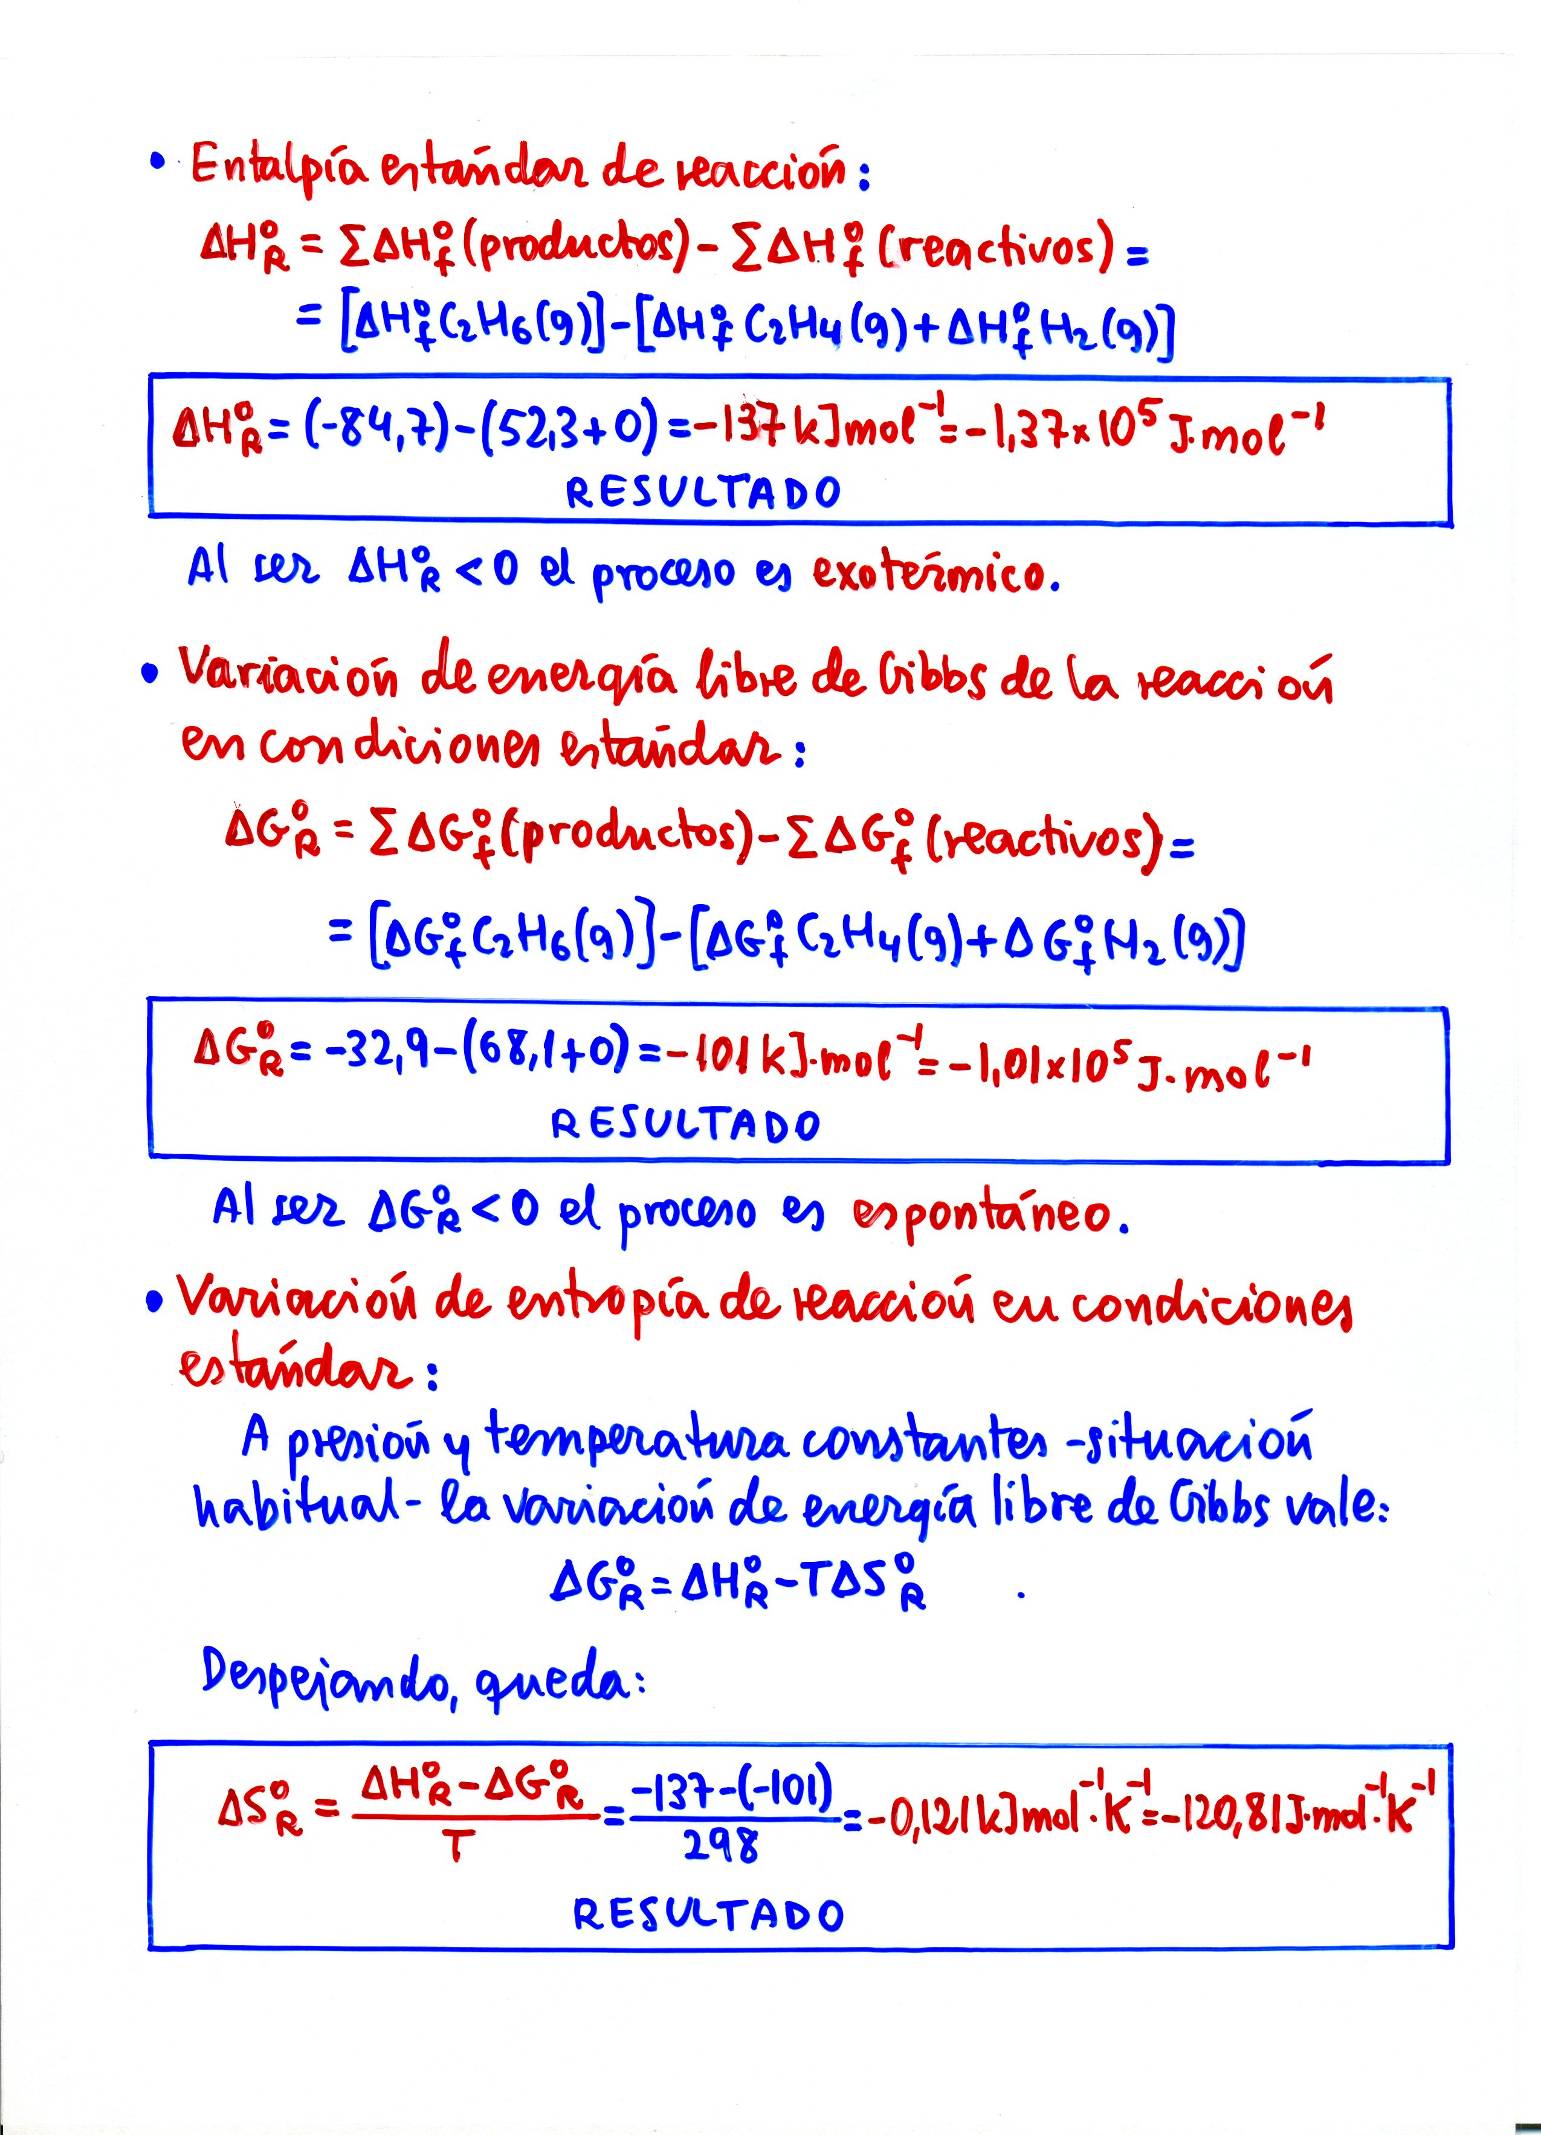 • Entalpía estándar de reacción:
ΔH°R = ΣΔH°f (productos) - ΣΔH°f (reactivos) =
= [ΔH°f C2H6(g)] - [ΔH°f C2H4(g) + ΔH°f H2(g)]
ΔH°R = (-84,7) - (52,3 + 0) = -137 kJ mol⁻¹ = -1,37 × 10⁵ J·mol⁻¹
RESULTADO
Al ser ΔH°R < 0 el proceso es exotérmico.
• Variación de energía libre de Gibbs de la reacción
en condiciones estándar:
ΔG°R = ΣΔG°f (productos) - ΣΔG°f (reactivos) =
= [ΔG°f C2H6(g)] - [ΔG°f C2H4(g) + ΔG°f H2(g)]
ΔG°R = -32,9 - (68,1 + 0) = -101 kJ·mol⁻¹ = -1,01 × 10⁵ J·mol⁻¹
RESULTADO
Al ser ΔG°R < 0 el proceso es espontáneo.
• Variación de entropía de reacción en condiciones
estándar:
A presión y temperatura constantes -situación
habitual- la variación de energía libre de Gibbs vale:
ΔG°R = ΔH°R - TΔS°R
Despejando, queda:
ΔS°R = (ΔH°R - ΔG°R)/T = (-137 - (-101))/298 = -0,121 kJ mol⁻¹·K⁻¹ = -120,81 J·mol⁻¹·K⁻¹
RESULTADO